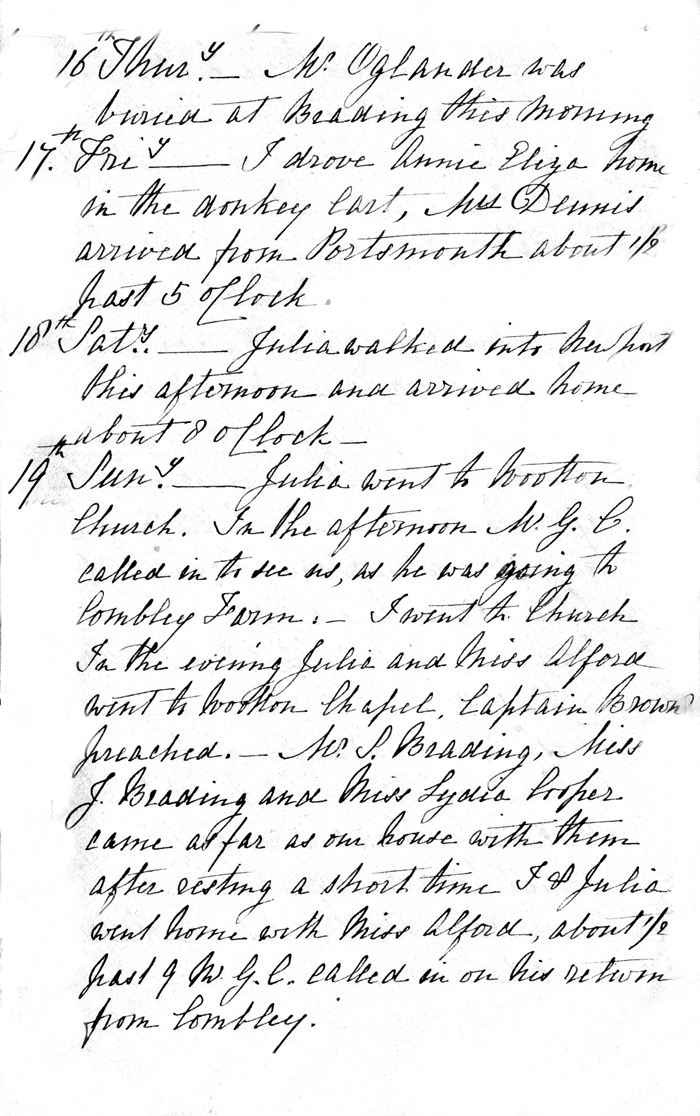 16th Thury. — Mr Oglander was
buried at Brading this Morning
17th. Friy — I drove Annie Eliza home
in the donkey Cart, Mrs Dennis
arrived from Portsmouth about 1/2
past 5 o'Clock.
18th Saty. — Julia walked into Newport
this afternoon and arrived home
about 8 o'Clock —
19th Suny. — Julia went to Wootton
Church. In the afternoon Mr. G. C.
called in to see us, as he was going to
Combley Farm. — I went to Church
In the evening Julia and Miss Alford
went to Wootton Chapel, Captain Brown
preached. — Mr. S. Brading, Miss
J. Brading and Miss Lydia Cooper
came as far as our house with them
after resting a short time I & Julia
went home with Miss Alford, about 1/2
past 9 Mr. G. C. called in on his return
from Combley.